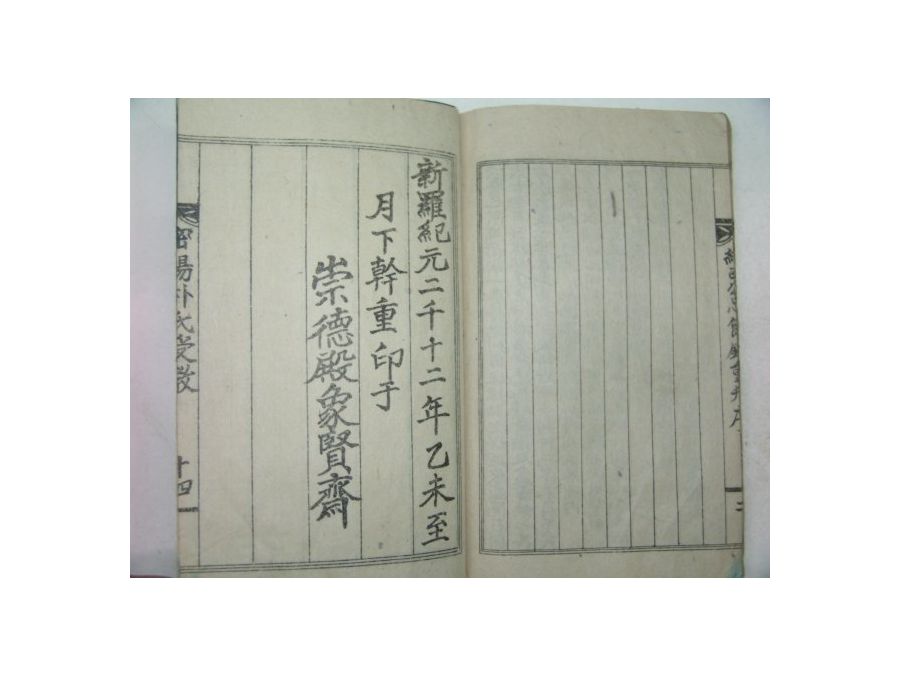 錄重刊序
二
新羅紀元二千十二年乙未至
月下幹重印于
崇德殿象賢齋
密陽朴氏受教
十四